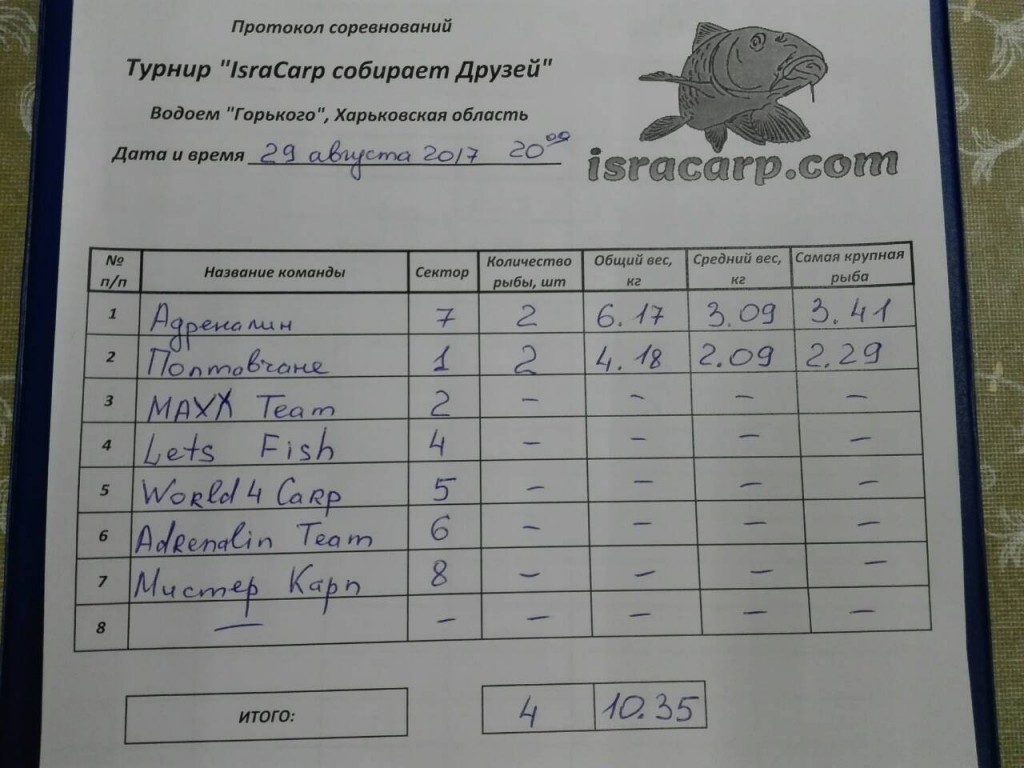 Протокол соревнований
Турнир "IsraCarp собирает Друзей"
Водоем "Горького", Харьковская область
Дата и время 29 августа 2017 20 00
isracarp.com
№ п/п Название команды Сектор Количество рыбы, шт Общий вес, кг Средний вес, кг Самая крупная рыба
1 Адреналин 7 2 6.17 3.09 3.41
2 Полтовчане 1 2 4.18 2.09 2.29
3 MAXX Team 2 – – – –
4 Lets Fish 4 – – – –
5 World 4 Carp 5 – – – –
6 Adrenalin Team 6 – – – –
7 Мистер Карп 8 – – – –
8 – – – – – –
ИТОГО: 4 10.35